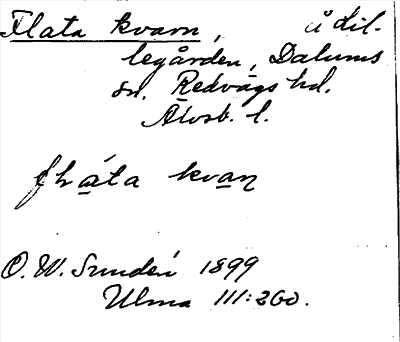 Flata kvarn, å Dil-
legården, Dalums
sn. Redvägs hd.
Älvsb. l.
fḷata kvaṇ
O. W. Sundén 1899
Ulma 111:260.